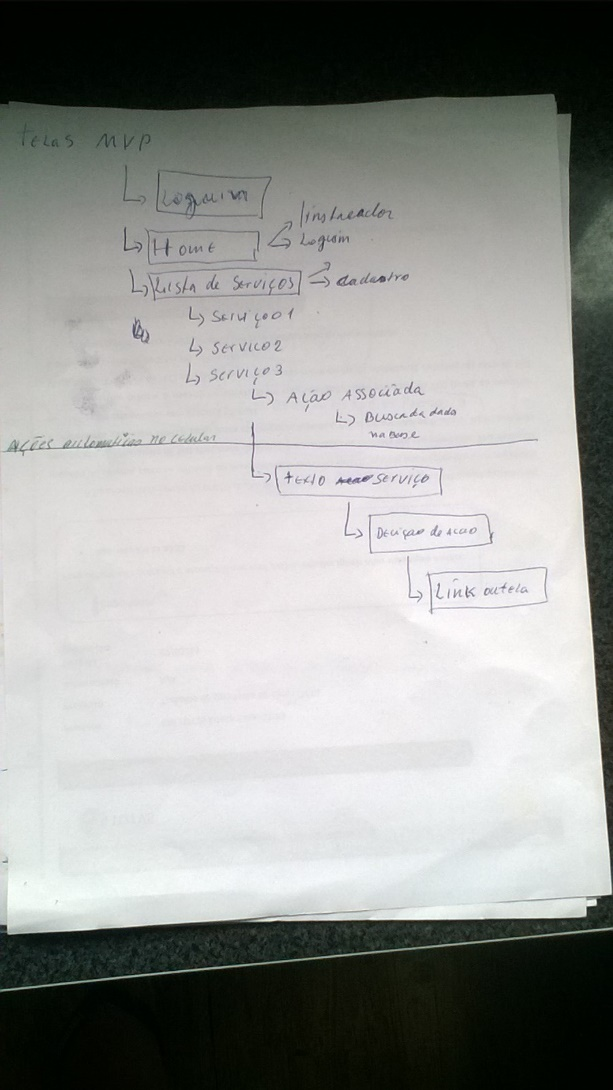 telas MVP
Loguim
Home
Loguim
Lista de Serviços
cadastro
Serviço 1
Serviço 2
Serviço 3
Ação Associada
Busca da dado
na Base
Ações automaticas no celular
texto serviço
Link ou tela